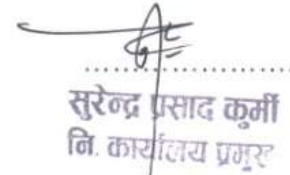 सुरेन्द्र प्रसाद कुर्मी
नि. कार्यालय प्रमुख